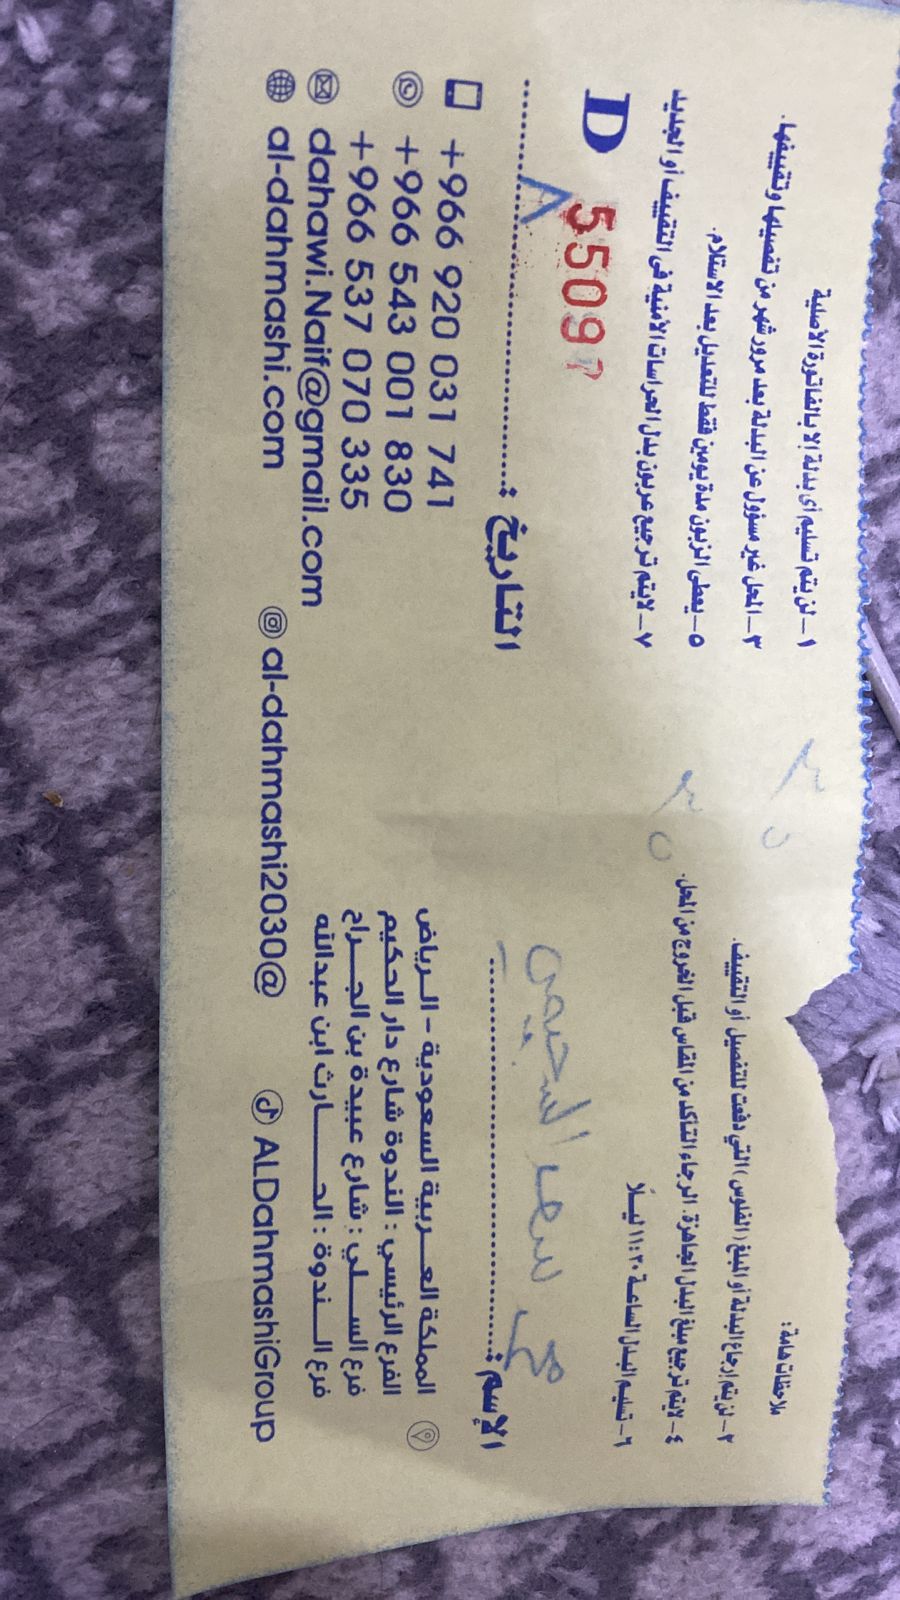 ملاحظات هامة:
١- لن يتم تسليم أي بدلة إلا بالفاتورة الأصلية
٢- لن يتم إرجاع البدلة أو المبلغ (الفلوس) التي دفعت للتفصيل أو التقييف.
٣- المحل غير مسؤول عن البدلة بعد مرور شهر من تفصيلها وتقييفها.
٤- لايتم ترجيع مبلغ البدل الجاهزة. الرجاء التأكد من المقاس قبل الخروج من المحل.
٥- يعطى الزبون مدة يومين فقط للتعديل بعد الاستلام.
٦- تسليم البدل الساعة ١١:٣٠ ليلًا
٧- لايتم ترجيع عربون بدل الحراسات الأمنية في التقييف أو الجديد
٣٥
٣٥
D 5509
الإسم: سعد السحيمي
التاريخ: ٨
المملكة العربية السعودية - الرياض
الفرع الرئيسي: الندوة شارع دار الحكيم
فرع السلي: شارع عبيدة بن الجراح
فرع الندوة: الحارث ابن عبدالله
+966 920 031 741
+966 543 001 830
+966 537 070 335
dahawi.Naif@gmail.com
al-dahmashi.com
al-dahmashi2030@
ALDahmashiGroup